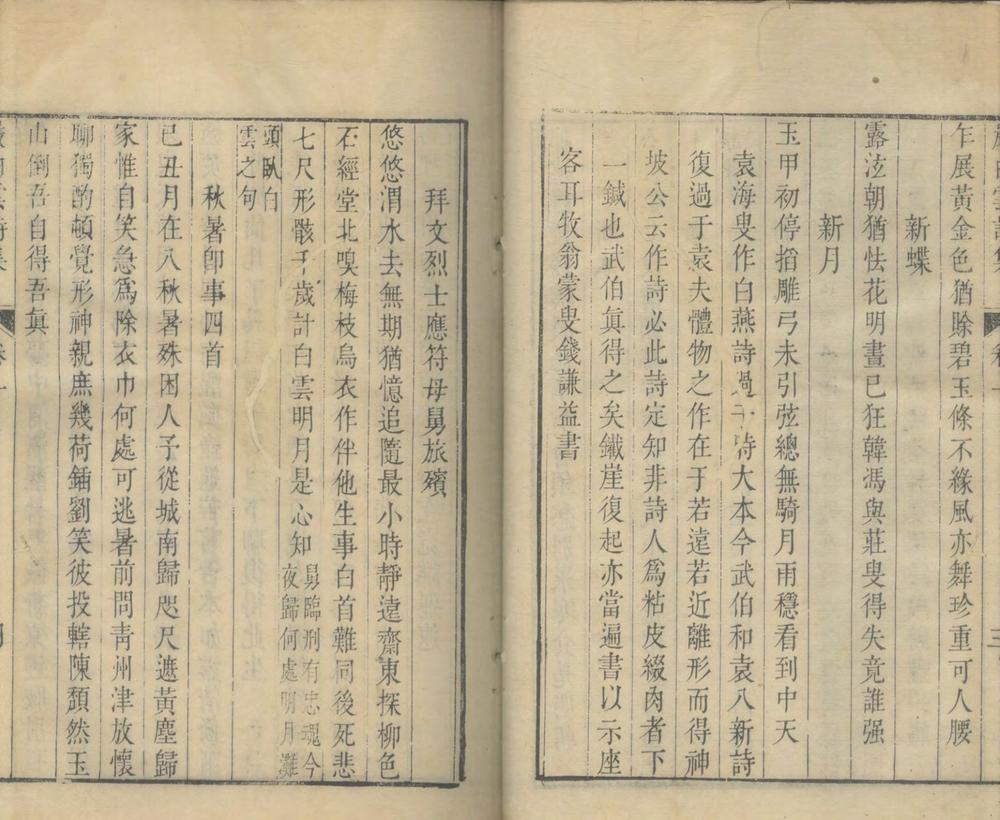 乍展黃金色猶賒碧玉條不緣風亦舞珍重可人腰
新蝶
露泫朝猶怯花明晝已狂韓馮與莊叟得失竟誰强
新月
玉甲初停搯雕弓未引弦總無騎月雨穩看到中天
袁海叟作白燕詩過于時大本今武伯和袁八新詩
復過于袁夫體物之作在于若遠若近離形而得神
坡公云作詩必此詩定知非詩人爲粘皮綴肉者下
一鍼也武伯眞得之矣鐵崖復起亦當遍書以示座
客耳牧翁蒙叟錢謙益書
拜文烈士應符母舅旅殯
悠悠渭水去無期猶憶追隨最小時靜遠齋東探柳色
石經堂北嗅梅枝烏衣作伴他生事白首難同後死悲
七尺形骸千歲計白雲明月是心知
舅臨刑有忠魂今
夜歸何處明月灘
頭臥白
雲之句
秋暑卽事四首
己丑月在八秋暑殊困人子從城南歸咫尺遮黃塵歸
家惟自笑急爲除衣巾何處可逃暑前問靑州津放懷
聊獨酌頓覺形神親庶幾荷鍤劉笑彼投轄陳頹然玉
山倒吾自得吾眞